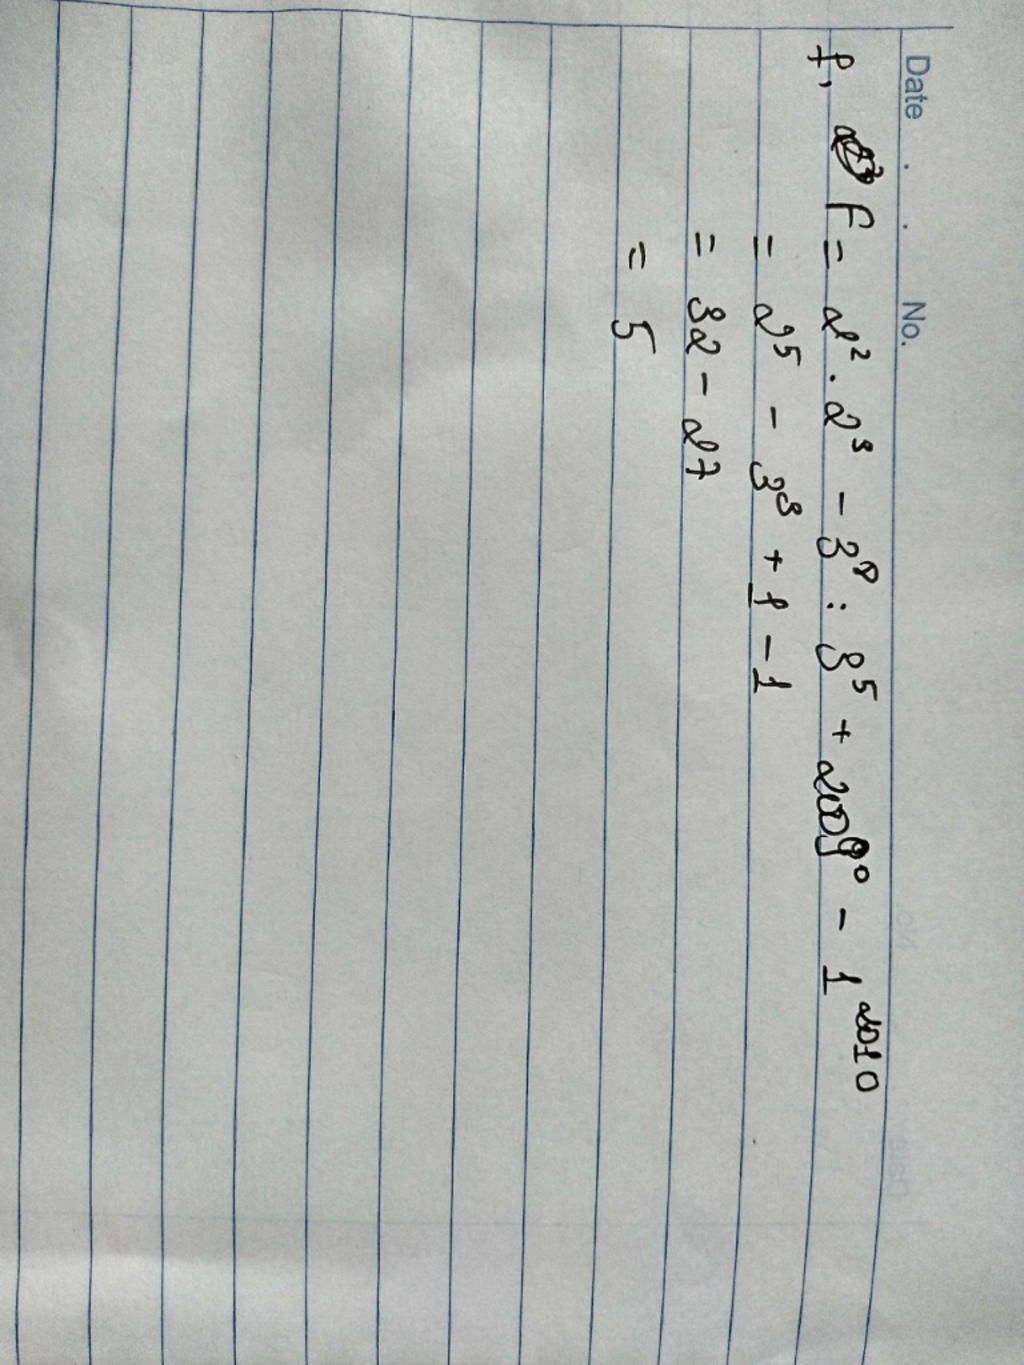 Date . . No.
f, F = 2² . 2³ - 3⁸ : 3⁵ + 2009⁰ - 1²⁰¹⁰
= 2⁵ - 3³ + 1 - 1
= 32 - 27
= 5